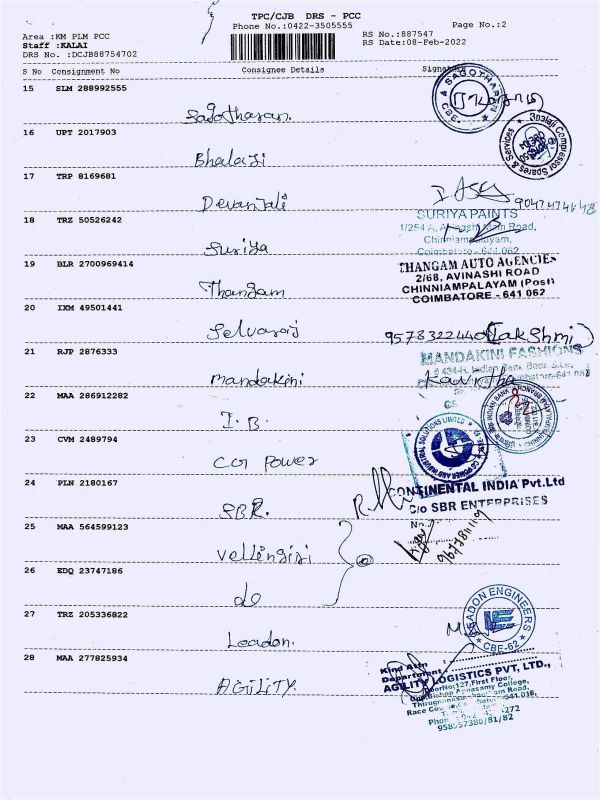 TPC/CJB DRS - PCC
Phone No.:0422-3505555 Page No.:2
Area :KM PLM PCC RS No.:887547
Staff :KALAI RS Date:08-Feb-2022
DRS No. :DCJB88754702
S No Consignment No Consignee Details Signature
15 SLM 288992555
SAGOTHARAN
CBE
Sagotharan.
16 UPT 2017903
Balaji Compressor Spares & Services
Bhalaji
17 TRP 8169681
Devanjali
18 TRZ 50526242
SURIYA PAINTS
1/254 A, Avinashi Main Road,
Chinniampalayam,
Coimbatore - 641 062
Suriya
19 BLR 2700969414
THANGAM AUTO AGENCIES
2/68, AVINASHI ROAD
CHINNIAMPALAYAM (Post)
COIMBATORE - 641 062
Thangam
20 IXM 49501441
Selvaraj
9578322440 (Lakshmi)
21 RJP 2876333
MANDAKINI FASHIONS
Mandakini
Kavitha
22 MAA 286912282
I.B
23 CVM 2489794
CG Power
24 PLN 2180167
CONTINENTAL INDIA Pvt.Ltd
C/o SBR ENTERPRISES
SBR.
25 MAA 564599123
No.
Vellingiri
9677811119
26 EDQ 23747186
do
27 TRZ 205336822
LEADON ENGINEERS
CBE-62
Leadon.
28 MAA 277825934
Kind Attn
Department
AGILITY LOGISTICS PVT, LTD.,
DoorNo:127,First Floor,
Opp.Bishop Appasamy College,
Race Course,
641 018,
958557380/81/82
AGILITY.